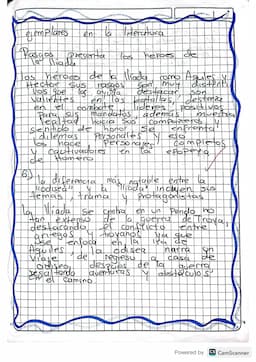 ejemplares en la literatura
Rasgos presenta los heroes de
la Iliada
los heroes de la Iliada como Aquiles y
Hector sus rasgos son muy distinti
vos que los ayuda destacar, son
valientes en las batallas, destreza
en el combate lideres positivos
Para sus mandatos, además muestra
lealtad hacia sus compañeros y
sentido de honor Se enfrenta
dilemas Personales y eso
los hace Personajes completos
y cautivadores en la epopeya
de Homero
6)
la diferencia más notable entre la
"Iliada" incluyen sus
temas, trama y Protagonistas
la Iliada se centra en un Periodo no
tan extenso de la guerra de troya,
destacando el conflicto entre
griegos y troyanos ya que
se enfoca en la ira de
Aquiles y la odisea narra un
viaje de regreso a casa de
odiseo después de la guerra
resaltando aventuras y obstaculos
en el camino.
Powered by CS CamScanner